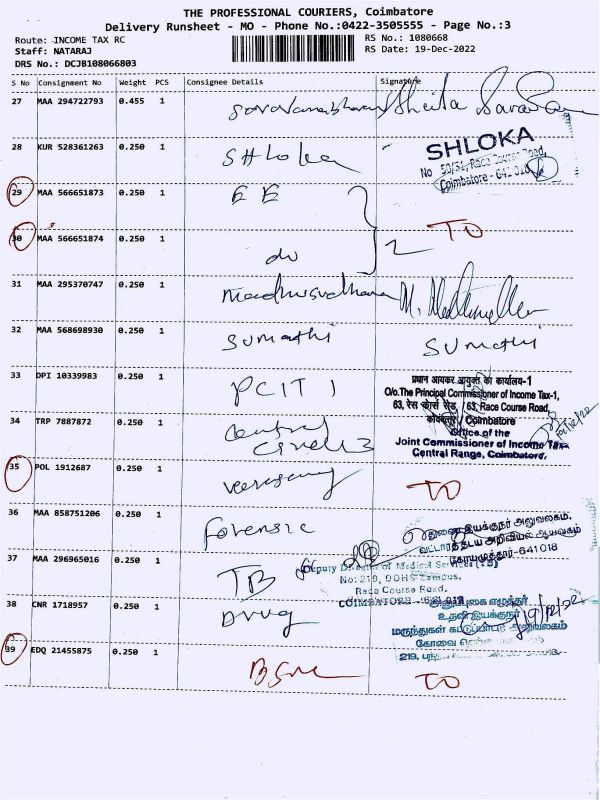 THE PROFESSIONAL COURIERS, Coimbatore
Delivery Runsheet - MO - Phone No.:0422-3505555 - Page No.:3
Route: INCOME TAX RC
RS No.: 1080668
Staff: NATARAJ
RS Date: 19-Dec-2022
DRS No.: DCJB108066803
S No Consignment No Weight PCS Consignee Details Signature
27 MAA 294722793 0.455 1
28 KUR 528361263 0.250 1 Shloka
SHLOKA
No 50/51, Race Course Road,
Coimbatore - 641 018
29 MAA 566651873 0.250 1 EE
30 MAA 566651874 0.250 1 do 2 TO
31 MAA 295370747 0.250 1
32 MAA 568698930 0.250 1 Sumathi Sumathi
33 DPI 10339983 0.250 1 PCIT 1
प्रधान आयकर आयुक्त का कार्यालय-1
O/o.The Principal Commissioner of Income Tax-1,
63, रेस कोर्स रोड / 63, Race Course Road,
कोयंबत्तूर / Coimbatore
34 TRP 7887872 0.250 1 Central Circle 3
Office of the
Joint Commissioner of Income Tax
Central Range, Coimbatore.
35 POL 1912687 0.250 1 TO
36 MAA 858751206 0.250 1 Forensic
துணை இயக்குநர் அலுவலகம்,
வட்டார தடய அறிவியல் ஆய்வகம்
கோயமுத்தூர்-641018
37 MAA 296965016 0.250 1 TB
Deputy Director of Medical Services (TB)
No: 219, DDHS Campus,
Race Course Road,
COIMBATORE - 641 018
38 CNR 1718957 0.250 1 Drug
உதவி இயக்குநர்
மருந்துகள் கட்டுப்பாடு அலுவலகம்
39 EDQ 21455875 0.250 1 BSNL TO